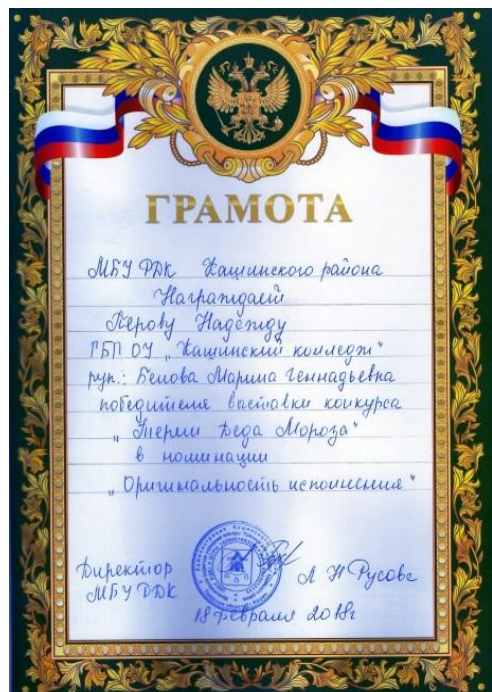 ГРАМОТА
МБУ РДК Кашинского района
Награждает
Перову Надежду
ГБП ОУ "Кашинский колледж"
рук.: Белова Марина Геннадьевна
победителя выставки конкурса
"Терем Деда Мороза"
в номинации
"Оригинальность исполнения"
Директор
МБУ РДК
Л Н Русова
18 февраля 2018г